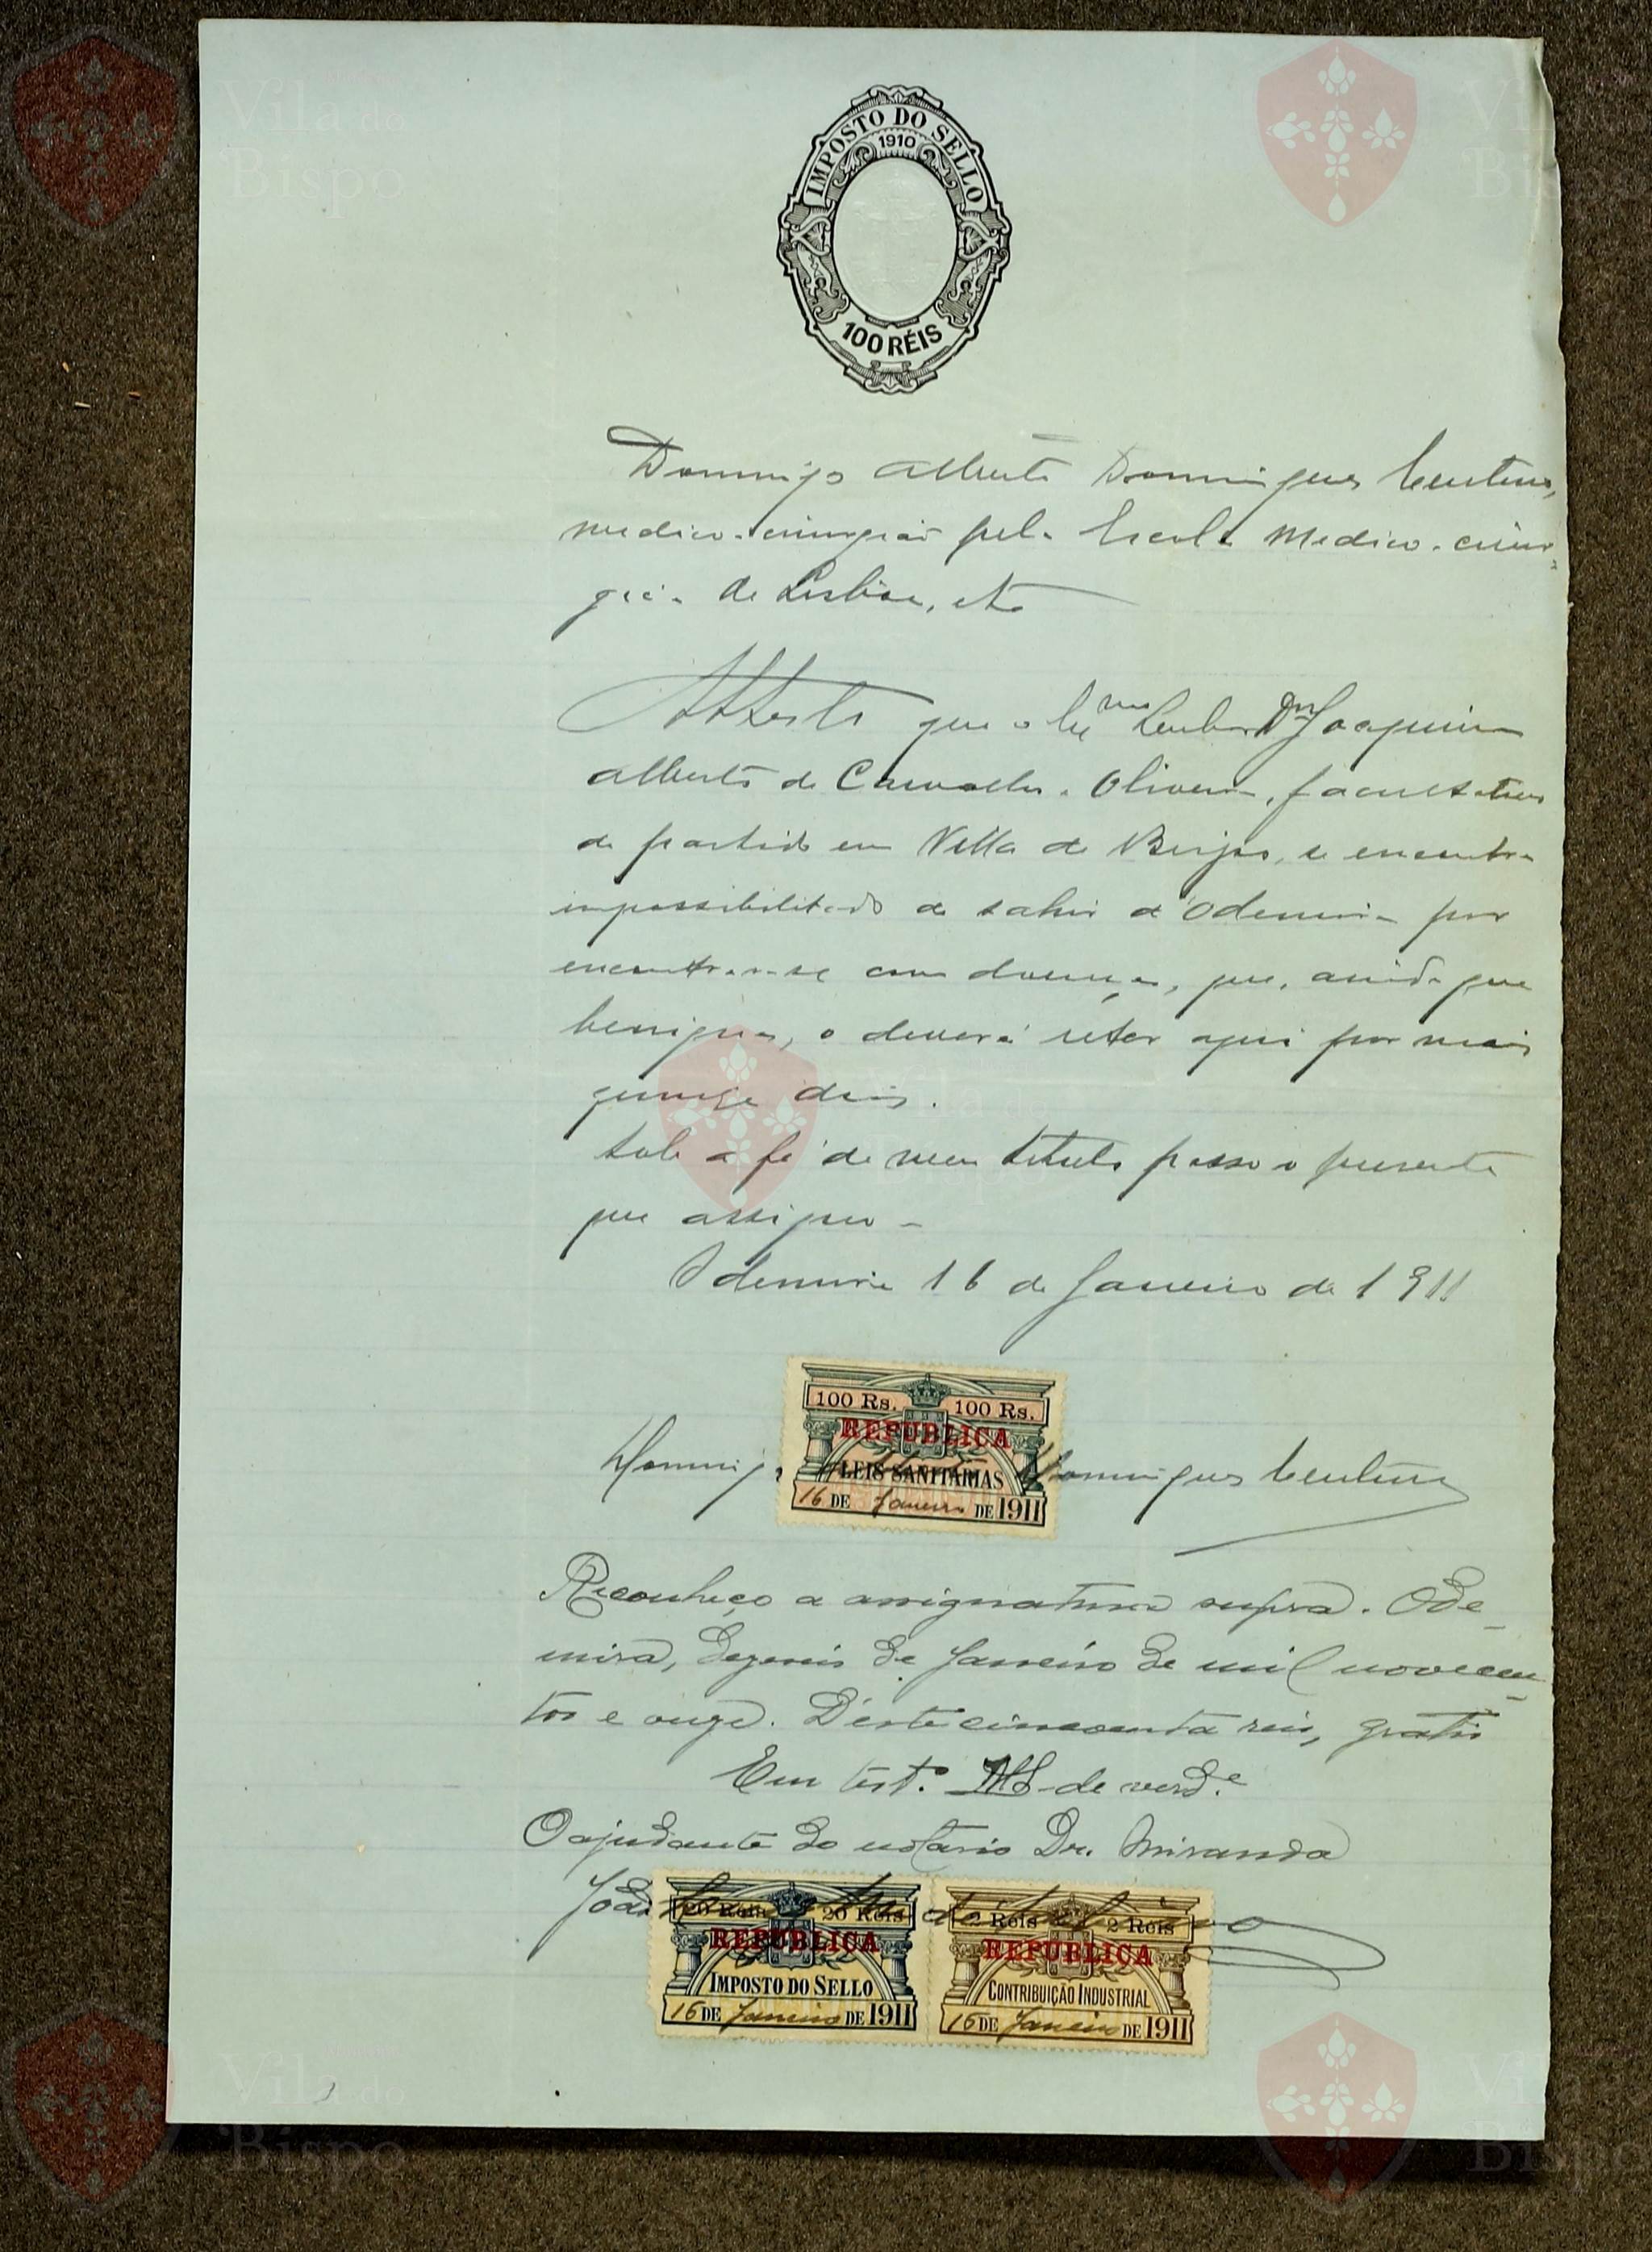 IMPOSTO DO SELLO
1910
100 RÉIS
Domingos Alberto Domingues Centeno,
medico-cirurgião pela Escola Medico-cirur-
gica de Lisboa, etc
Attesto que o Ex.mo Senhor Dr. Joaquim
Alberto de Carvalho e Oliveira, facultativo
de partido em Villa do Bispo, se encontra
impossibilitado de sahir d'Odemira por
encontrar-se com doença, que, ainda que
benigna, o deverá reter aqui por mais
quinze dias.
Sob a fé de meu titulo passo o presente
que assigno -
Odemira 16 de Janeiro de 1911
100 Rs. 100 Rs.
REPUBLICA
LEIS SANITARIAS
16 DE Janeiro DE 1911
Domingos Domingues Centeno
Reconheço a assignatura supra. Ode-
mira, dezeseis de Janeiro de mil novecen-
tos e onze. D'este cincoenta reis, gratis
Em test.º de verd.e
O ajudante do notario Dr. Miranda
João
20 Réis 20 Réis
REPUBLICA
IMPOSTO DO SELLO
16 DE Janeiro DE 1911
2 Réis 2 Réis
REPUBLICA
CONTRIBUIÇÃO INDUSTRIAL
16 DE Janeiro DE 1911
Vila do
Bispo